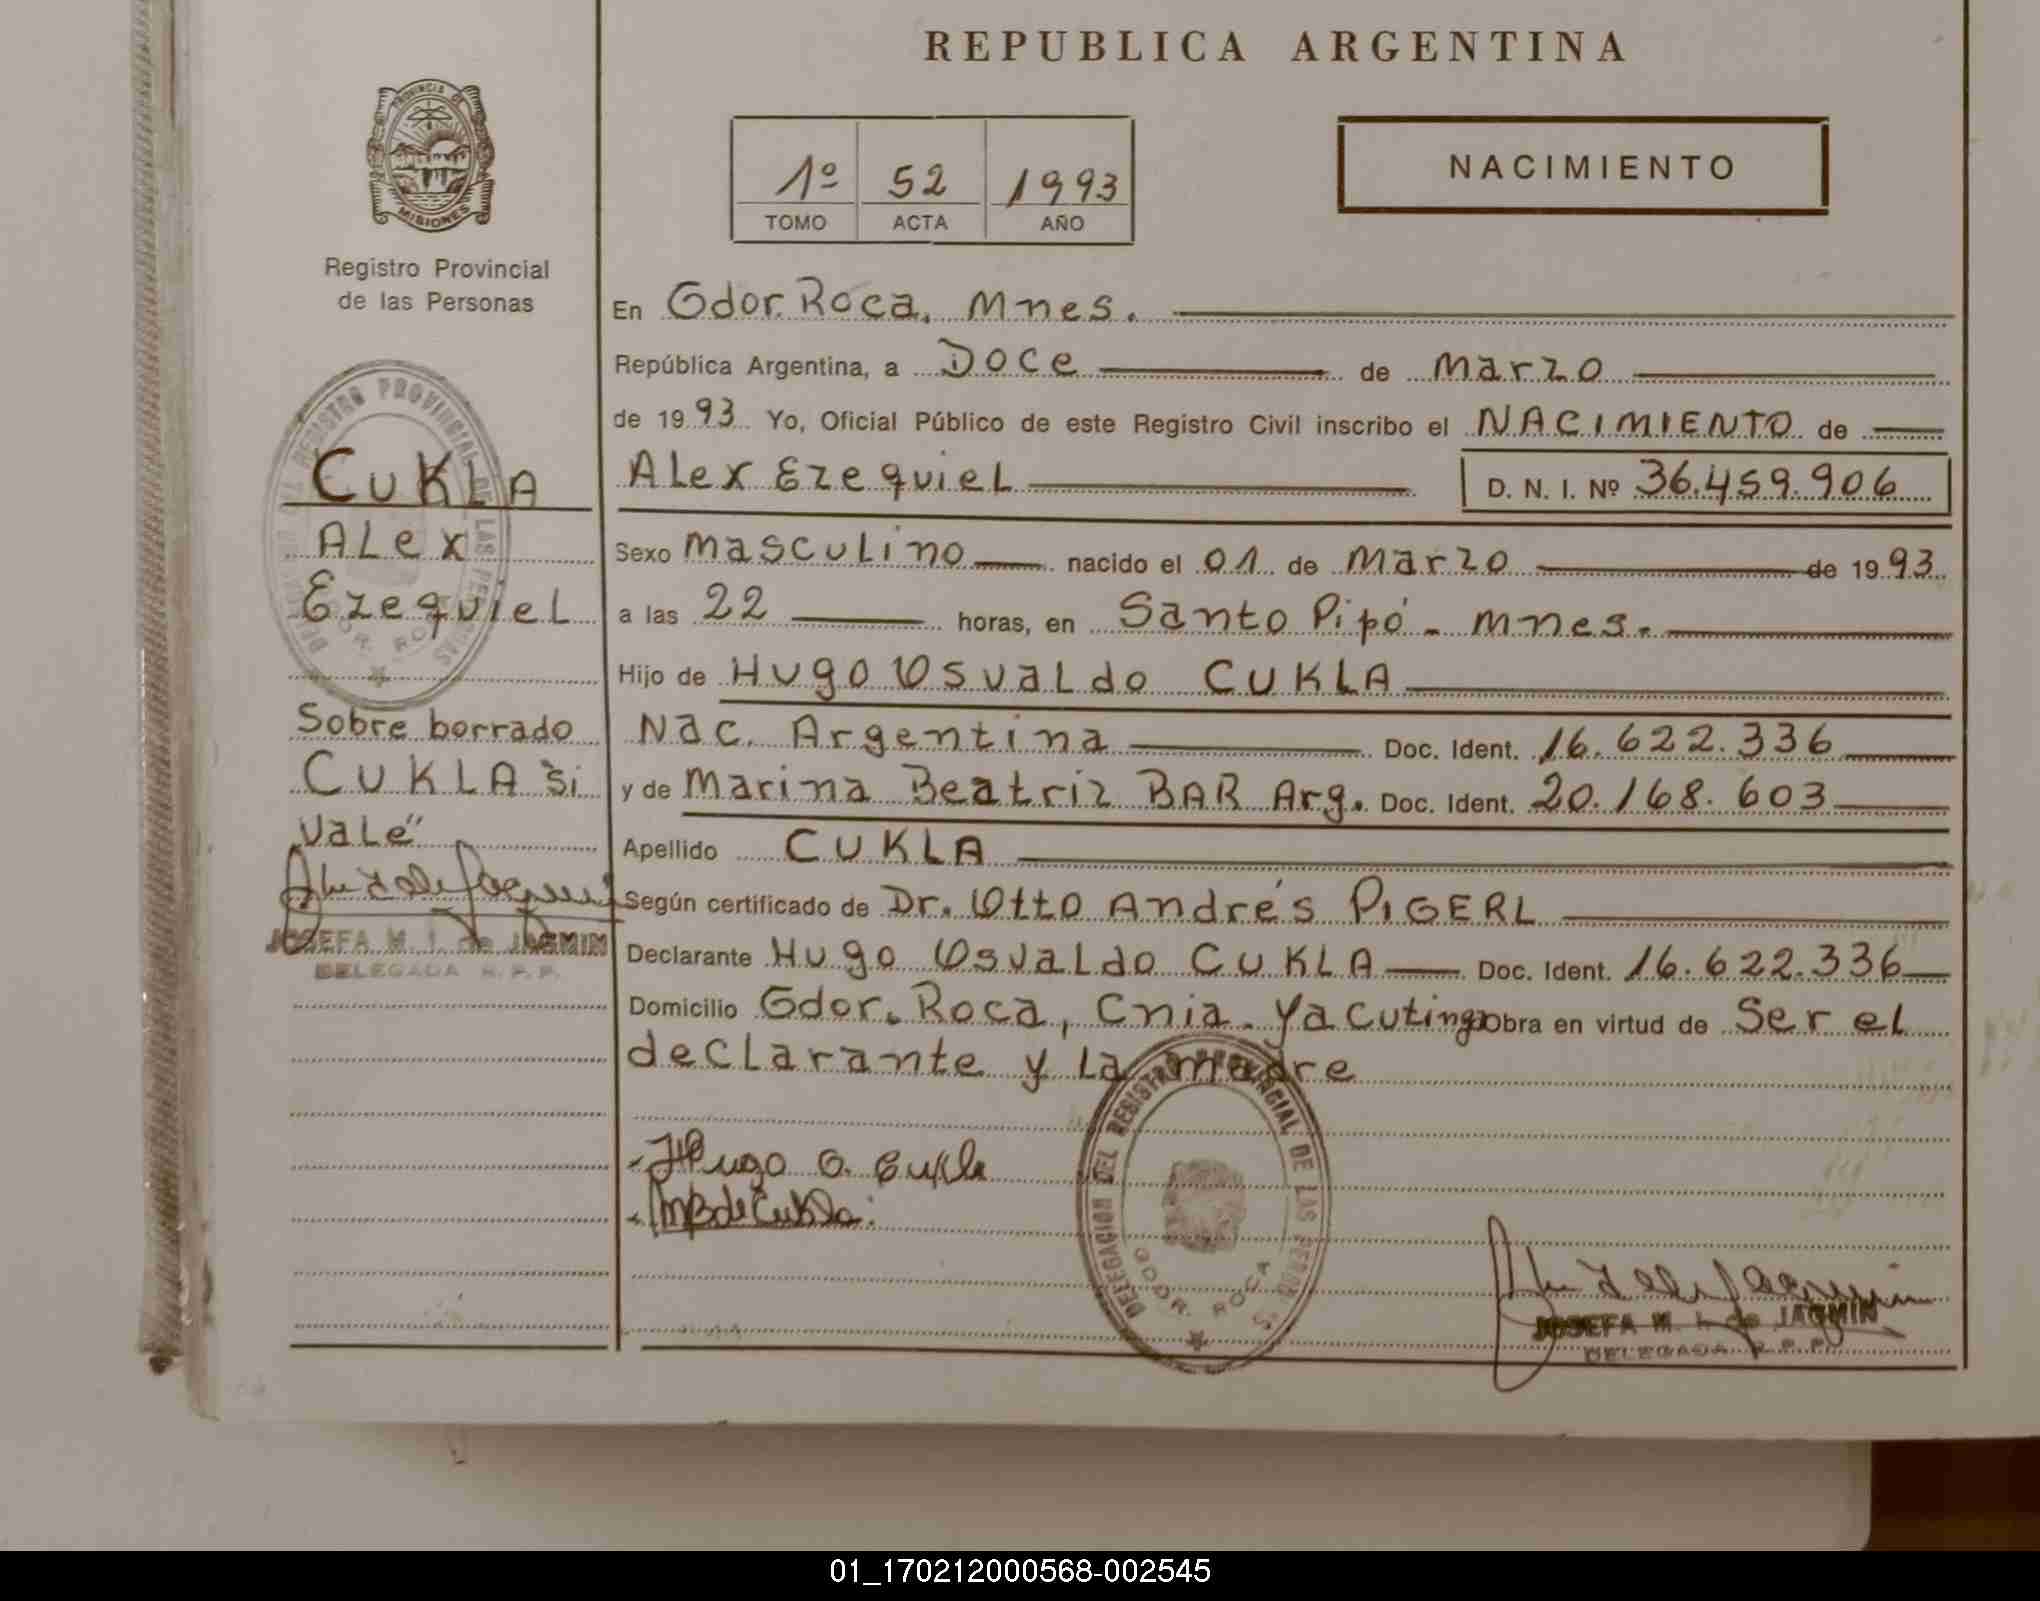 REPUBLICA ARGENTINA
PROVINCIA DE
MISIONES
Registro Provincial
de las Personas
1º 52 1993
TOMO ACTA AÑO
NACIMIENTO
En Gdor. Roca, Mnes.
República Argentina, a Doce de Marzo
de 1993 Yo, Oficial Público de este Registro Civil inscribo el NACIMIENTO de
Alex Ezequiel D. N. I. Nº 36.459.906
Sexo Masculino nacido el 01 de Marzo de 1993
a las 22 horas, en Santo Pipó - Mnes.
Hijo de Hugo Osvaldo CUKLA
Nac. Argentina Doc. Ident. 16.622.336
y de Marina Beatriz BAR Arg. Doc. Ident. 20.168.603
Apellido CUKLA
Según certificado de Dr. Otto Andrés PIGERL
Declarante Hugo Osvaldo CUKLA Doc. Ident. 16.622.336
Domicilio Gdor. Roca, Cnia. Yacutinga obra en virtud de Ser el
declarante y la madre
Hugo O. Cukla
MB de Cukla
DELEGACION DEL REGISTRO PROVINCIAL DE LAS PERSONAS
GDOR. ROCA
JOSEFA M. I. de JAGMIN
DELEGADA R. P. P.
CUKLA
Alex
Ezequiel
Sobre borrado
CUKLA "Si
Vale"
JOSEFA M. I. de JAGMIN
DELEGADA R. P. P.
REGISTRO PROVINCIAL DE LAS PERSONAS
01_170212000568-002545